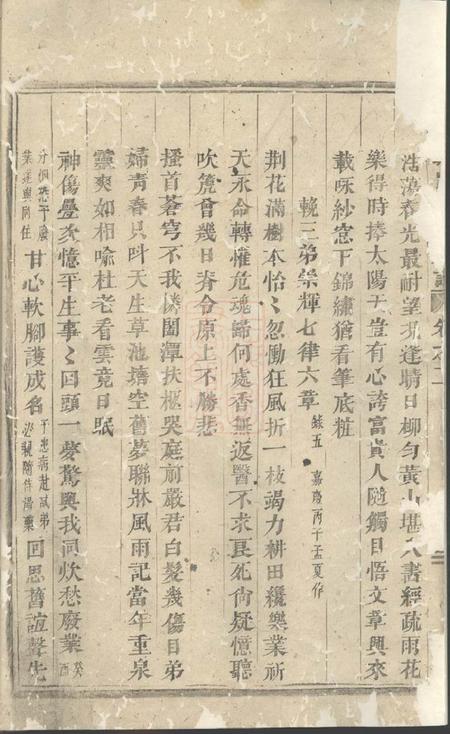 浩蕩春光最耐望況逢晴日柳勻黃山堪入畫經疏雨花
樂得時捧太陽天豈有心誇富貴人隨觸目悟文章興來
載咏紗窓下錦繡猶看筆底粧
輓三弟崇輝七律六章 錄五 嘉慶丙子孟夏作
荆花滿樹本怡〻忽慟狂風折一枝竭力耕田纔樂業祈
天永命轉罹危魂歸何處香無返醫不求良死尙疑憶聽
吹篪曾幾日脊令原上不勝悲
搔首蒼穹不我憐閣潭扶柩哭庭前嚴君白髮幾傷日弟
婦青春只呌天生草池塘空舊夢聯牀風雨記當年重泉
靈爽如相喻杜老看雲竟日眠
神傷疊炙憶平生事〻回頭一夢驚與我同炊愁廢業 癸酉
分恐予廢業遂與同住 甘心軟腳護成名 予患病赴試弟必親隨侍湯藥 回思舊誼聲先
卷之二